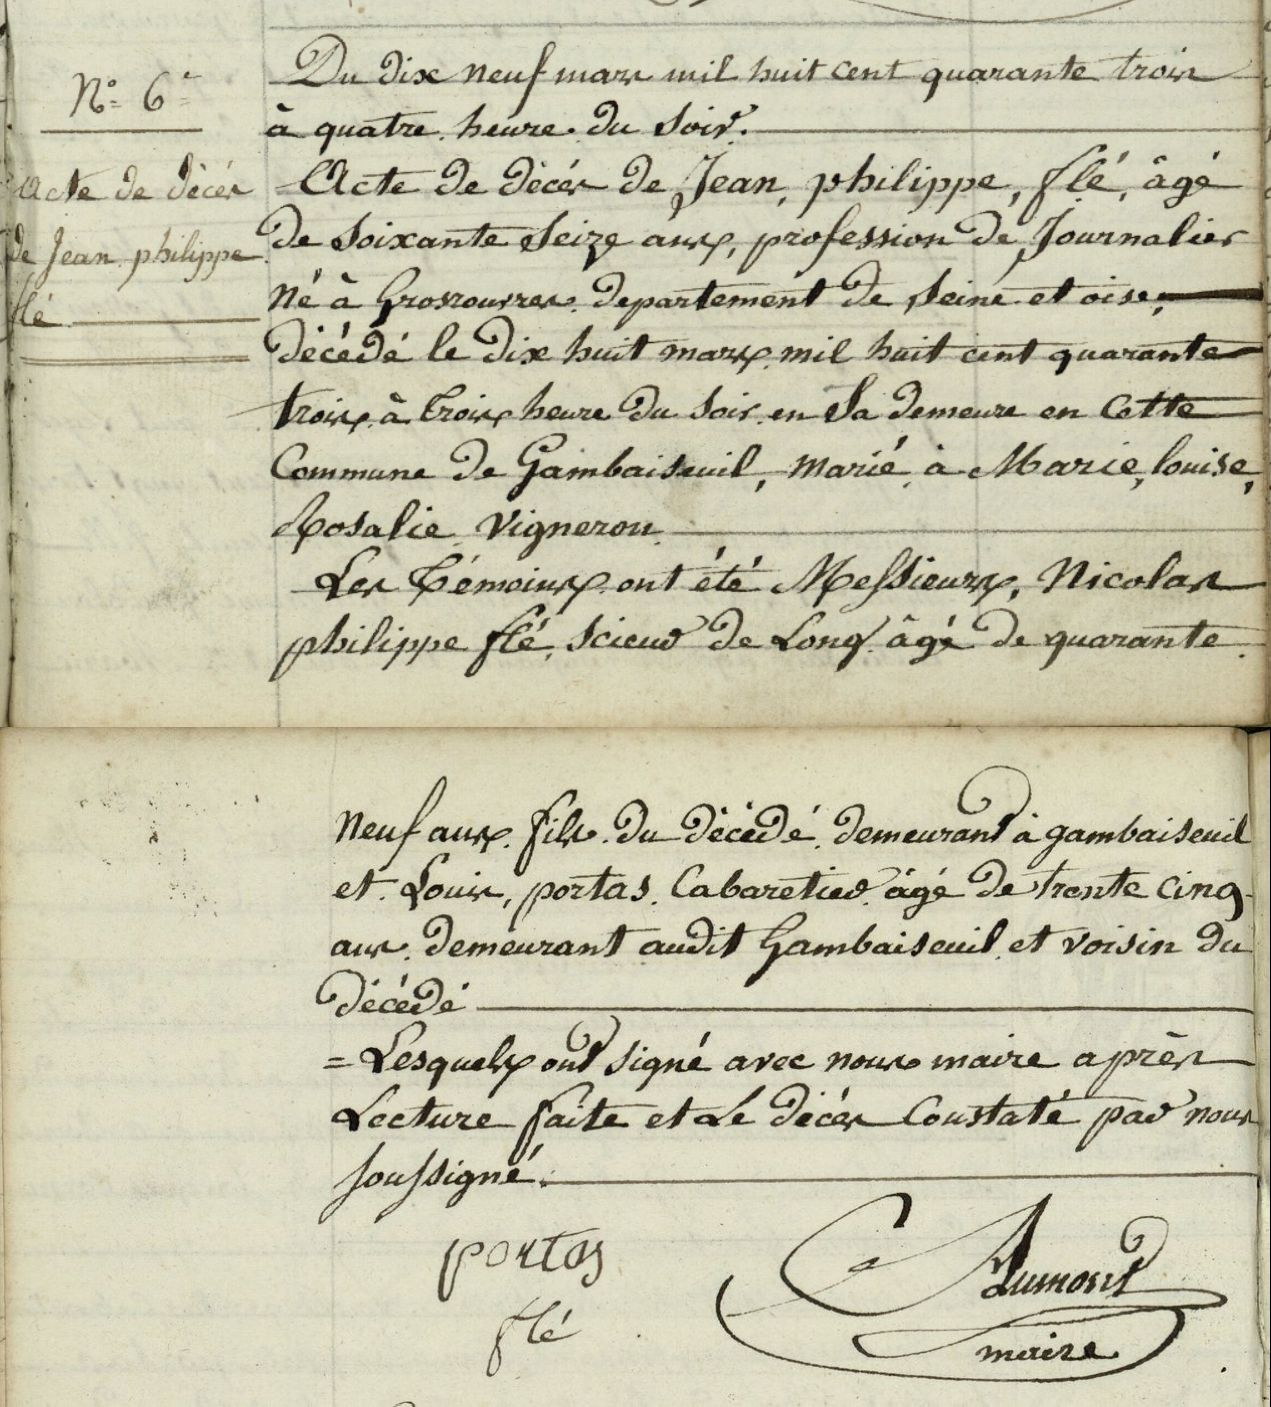 N° 6
Acte de décès
de Jean philippe
flé
Du dix neuf mars mil huit cent quarante trois
à quatre heure du soir.
Acte de décès de Jean, philippe, flé, âgé
de soixante seize ans, profession de Journalier
né à Grosrouvres departement de Seine et oise,
décédé le dix huit mars mil huit cent quarante
trois à trois heure du soir en sa demeure en cette
Commune de Gambaiseuil, marié à Marie, louise,
Rosalie Vigneron
Les témoins ont été Messieurs, Nicolas
philippe flé, scieur de Long âgé de quarante
neuf ans fils du décédé demeurant à gambaiseuil
et Louis, portas Cabaretier âgé de trente cinq
ans demeurant audit Gambaiseuil et voisin du
décédé
= Lesquels ont signé avec nous maire après
Lecture faite et Le décès Constaté par nous
soussigné.
portas
flé
maire